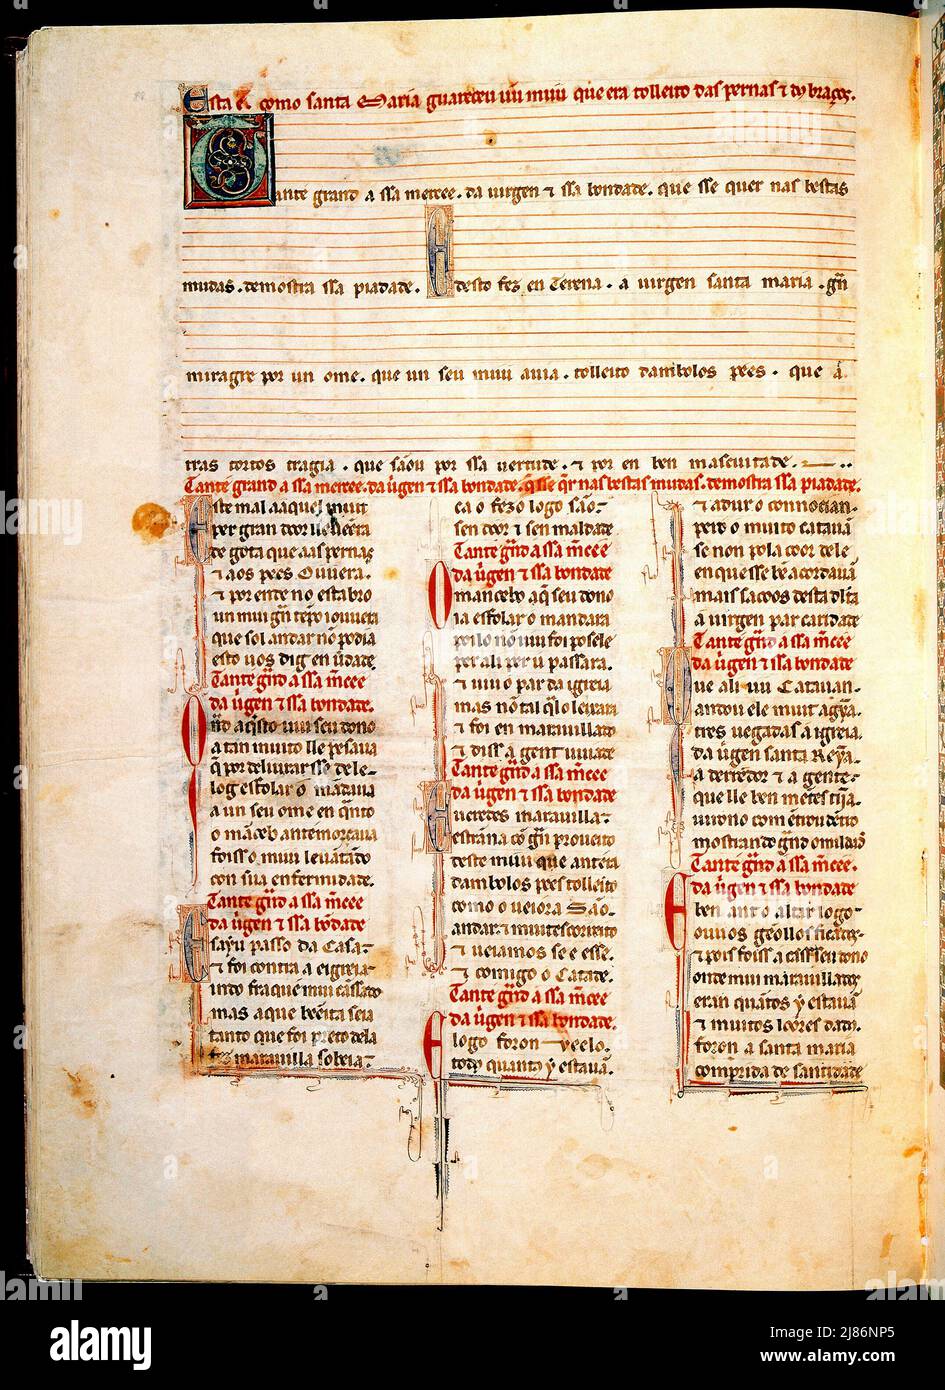 Esta é como santa Maria guareceu un muu que era tolleito das pernas ⁊ dos braços.
Tante grand a ssa mercee. da uirgen ⁊ ssa bondade. que sse quer nas bestas
mudas. demostra ssa piadade. E desto fez en Terena. a uirgen santa maria. grã
miragre por un ome. que un seu muu auia. tolleito dambolos pees. que a
tras tortos tragia. que sãou por ssa uertude. ⁊ por en ben mascuitade.
Tante grand a ssa mercee. da uigen ⁊ ssa bondade. q̃ sse q̃r nas bestas mudas. demostra ssa piadade.
Este mal aaquel muu
per gran door lle
de gota que aas pernas
⁊ aos pees Ouuera.
⁊ por ende no estabro
un mui grã tẽpo iouuera
que sol andar nõ podia
esto uos dig en ũdade.
Tante gñd a ssa m̃cee
da ũgen ⁊ ssa bondade.
Ond aq̃sto uiu seu dono
a tan muito lle pesaua
q̃ por deliurar sse dele
log esfolar o mãdaua
a un seu ome en q̃nto
o mãceb ant
foiss o muu leuãtãdo
con sua enfermidade.
Tante gñd a ssa m̃cee
da ũgen ⁊ ssa bõdade.
E sayu passo da Casa
⁊ foi contra a eigreia
indo fraque mui cãssado
mas a que bẽeita seia
tanto que foi preto dela
fez marauilla sobeia
ca o fezo logo são
sen door ⁊ sen maldade
Tante gñd a ssa m̃cee
da ũgen ⁊ ssa bondade
O mancebo a q̃ seu dono
ia esfolar o mandara
poilo nõ uiu foi posele
per ali per u passara.
⁊ uiuo par da igreia
mas nõ tal q̃l o leixara
⁊ foi en marauillado
⁊ diss a gent uiiade
Tante gñd a ssa m̃cee
da ũgen ⁊ ssa bondade
E ueredes marauilla
estrãna cõ grã proueito
deste muu que ant era
dambolos pees tolleito
como o ueiora São
andar ⁊ muit escorreito
⁊ ueiamos se e esse
⁊ comigo o Catade.
Tante gñd a ssa m̃cee
da ũgen ⁊ ssa bondade.
E logo foron ueelo
todos quanto y estauã
⁊ adur o connocian
pero o muito catauã
se non pola coor dele
en que sse bẽ acordauã
mais sacoos desta dulta
a uirgen par caridade
Tante gñd a ssa m̃cee
da ũgen ⁊ ssa bondade
Que ali uu Catauan
andou ele muit agỹa
tres uegadas a igreia
da ũgen santa Reỹa
a derredor ⁊ a gente
que lle ben mentes tĩja
uirono com entrou dẽtro
mostrando gñd omildade
Tante gñd a ssa m̃cee
da ũgen ⁊ ssa bondade
E ben ant o altar logo
ouuos geollos ficados
⁊ pois foiss a cas seu dono
onde mui marauillados
eran quantos y estauã
⁊ muitos loores dados
foron a santa maria
comprida de santidade
alamy
Image ID: 2J86NP5
www.alamy.com